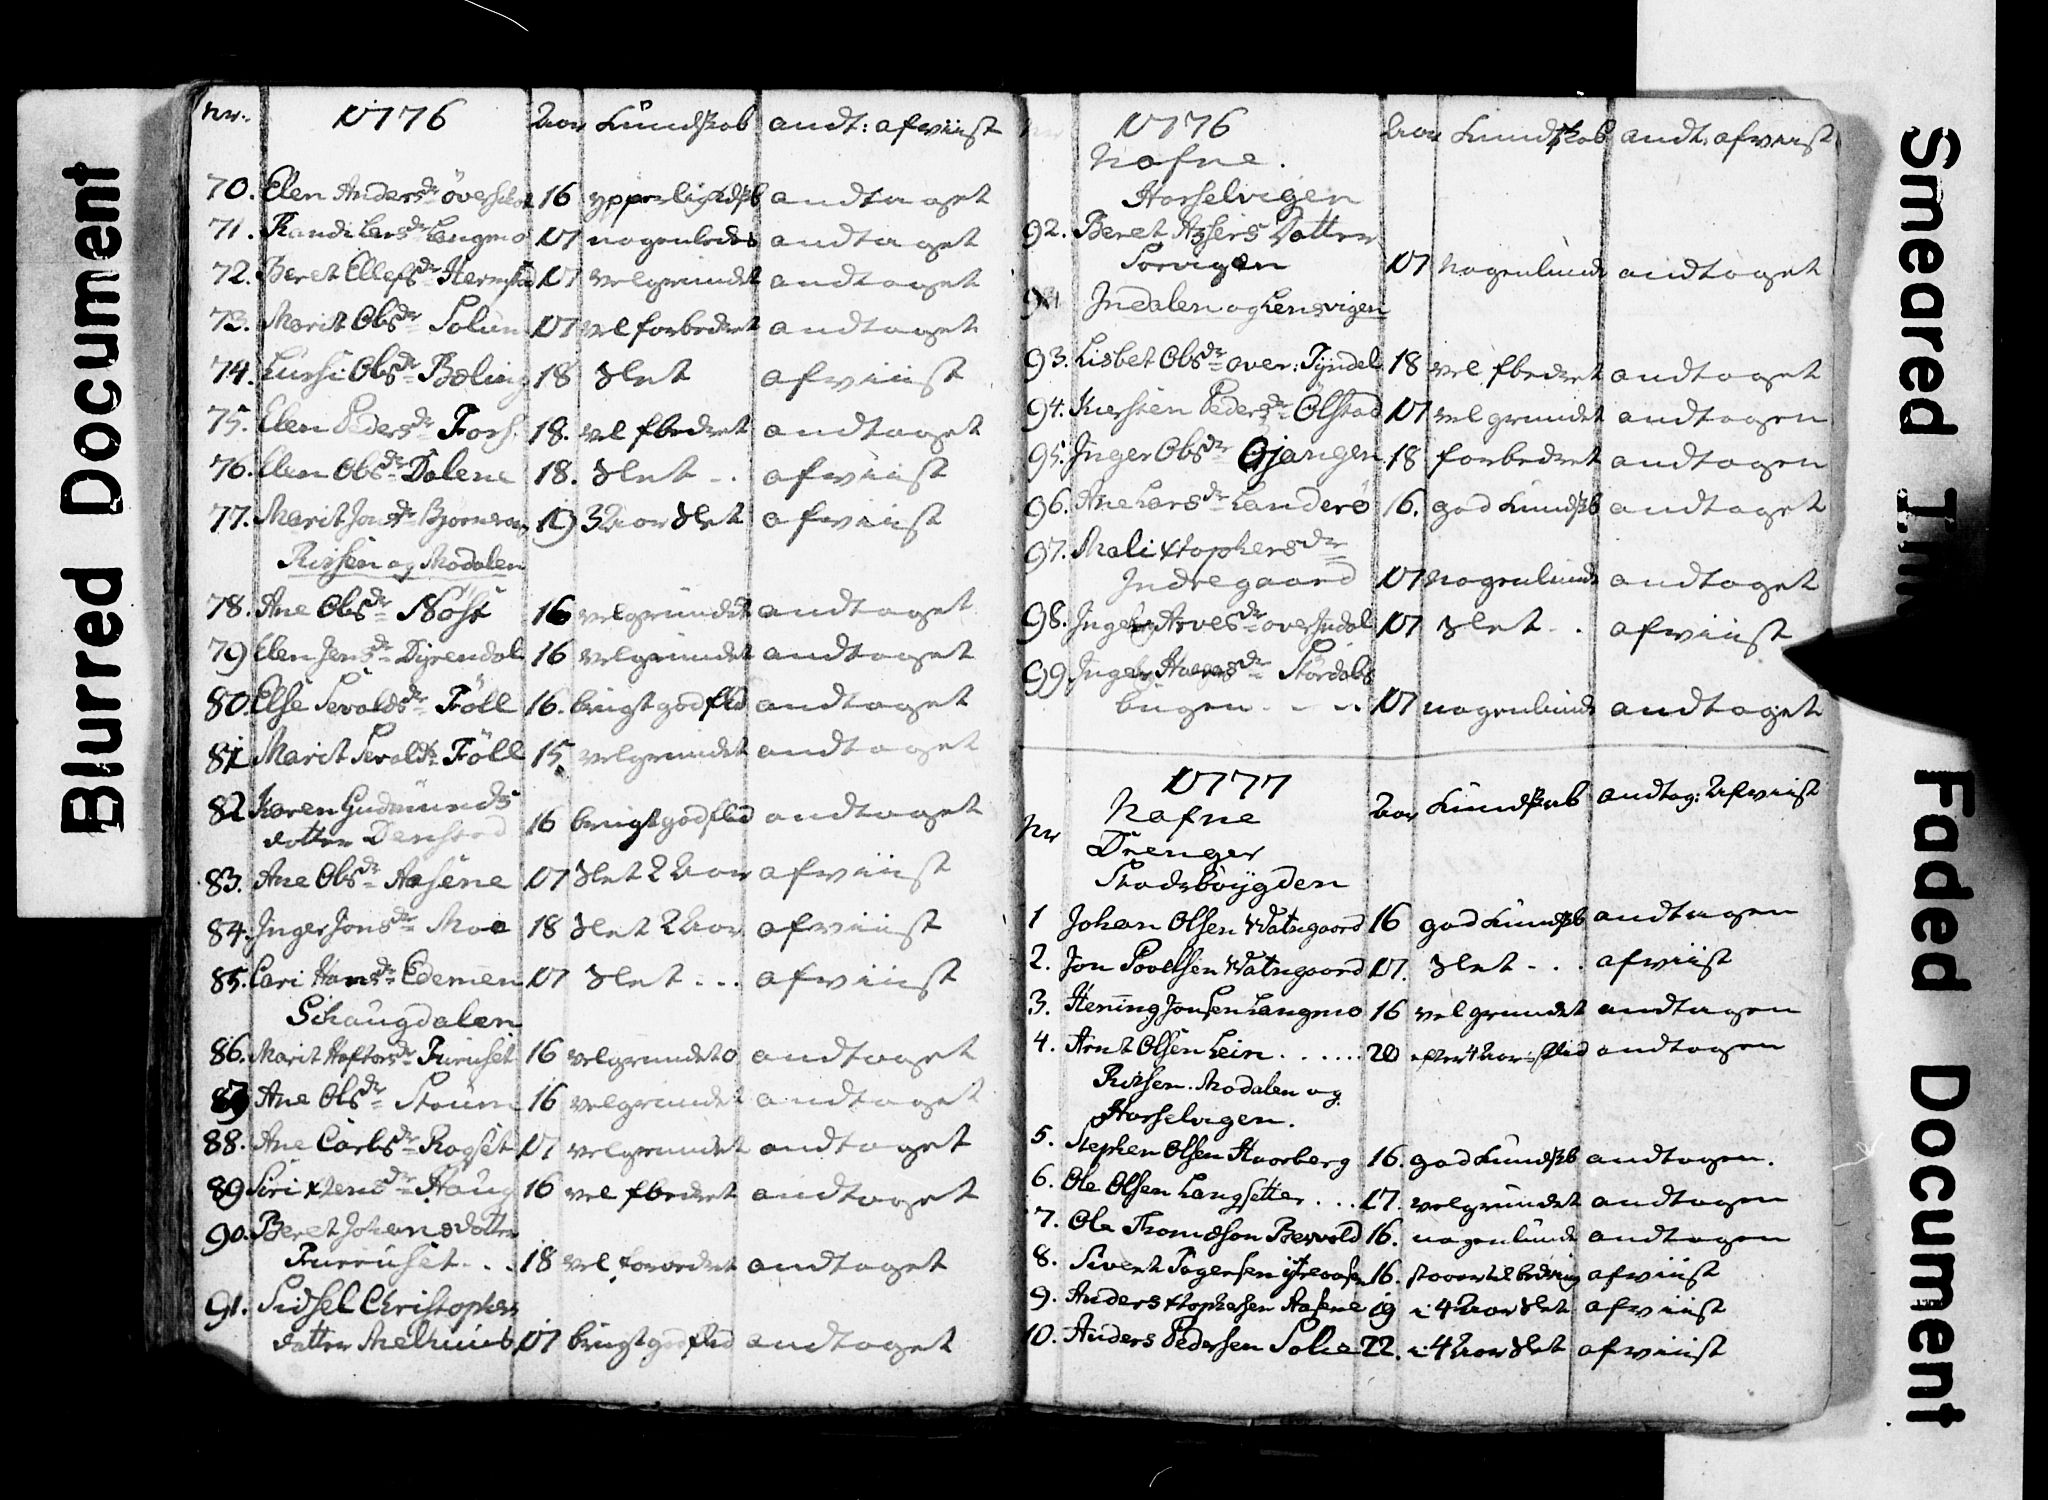 Blurred Document
nr. 1776 Aar Kundskab andt: afviist
70. Elen Anders dr 16 andtaget
71. Randi Lars dr Langmo 17 nogenledes andtaget
72. Beret Ellefs dr 17 velgrundet andtaget
73. Marit Ols dr Solun 17 vel forbedret andtaget
74. Ols dr 18 slet afviist
75. Elen Peders dr Fors 18. vel fbedret andtaget
76. Elen Ols dr Dalene 18. slet - . afviist
77. Marit Jons dr 19 3 Aar slet afviist
Rissen og Modalen
78. Ane Ols dr Nöst 16 velgrundet andtaget
79 Elen Jens dr Dyrendal 16 velgrundet andtaget
80. Else Sevalds dr Föll 16. brugt god flid andtaget
81 Marit Sevalds dr Föll 15. velgrundet andtaget
82 Karen Gudmunds
datter 16 brugt god flid andtaget
83. Ane Ols dr Aasene 17 slet 2 Aar afviist
84. Inger Jons dr Moe 18 slet 2 Aar afviist
85. Cari Hans dr 17 slet ... afviist
Schaugdalen
86. Marit Haftors dr Furuset 16 velgrundet andtaget
87 Ane Ols dr 16 velgrundet andtaget
88. Ane Carls dr Rogset 17 velgrundet andtaget
89 Siri Xtens dr Haug 16 vel fbedret andtaget
90. Beret Johans datter
Furruset . . . 18 vel forbedret andtaget
91. Sidsel Christophers
datter Melhuus 17 brugt god flid andtaget
1776 Aar Kundskab andt: afviist
Nafne.
Hasselvigen
92. Beret Datter
Sorvigen 17 nogenlunde andtaget
Indalen og Lensvigen
93. Lisbet Ols dr over: Tyndel 18 vel fbedret andtaget
94. Kiersten Peders dr Ölstad 17 velgrundet andtagen
95. Inger Ols dr Gjangen 18 forbedret andtagen
96. Ane Lars dr Landerö 16. god Kundskb andtaget
97. Mali Xtophers dr
Indregaard 17 nogenlunde andtaget
98. Arves dr over Indal 17 slet - . afviist
99. dr Stördals
bugen - - .. 17 nogenlunde andtaget
1777
nr Nafne Aar Kundskab andtag: Afviist
Drenger
Stadsböygden
1 Johan Olsen Watngaard 16 god Kundskb andtagen
2. Jon Povelsen Watngaard 17. slet - . . afviist
3. Hening Jonsen Langmo 16 velgrundet andtagen
4. Arnt Olsen Lein ...... 20 efter 4 Aars flid andtagen
Rissen. Modalen og
Hasselvigen.
5. Stephen Olsen Haarberg 16. god Kundskb andtagen.
6. Ole Olsen Langsetter ... 17. velgrundet andtagen
7. Ole Thomesen 16. nogenlunde andtagen
8. Sivert 16. afviist
9. Anders Xtophersen Aasene 19 i 4 Aar slet afviist
10. Anders Pedersen 22. i 4 Aar slet afviist
Smeared Ink
Faded Document